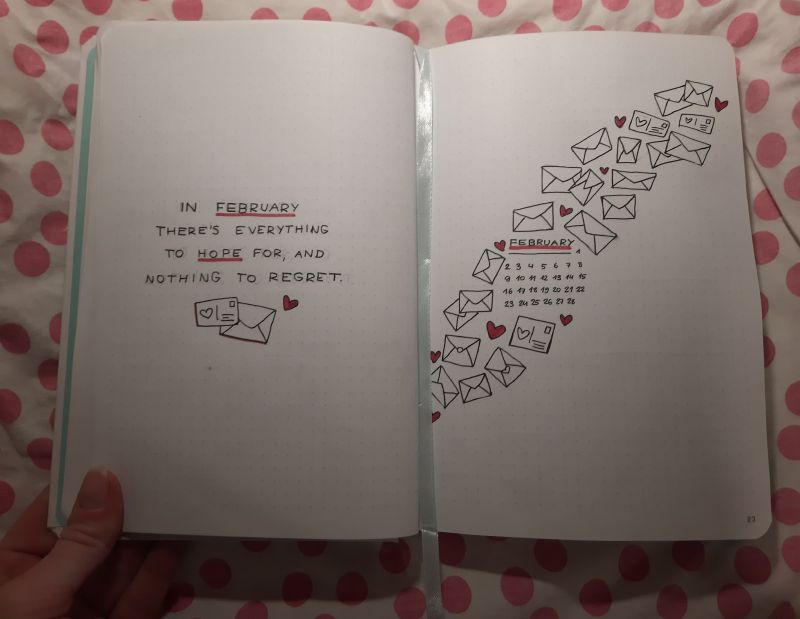 IN FEBRUARY
THERE'S EVERYTHING
TO HOPE FOR, AND
NOTHING TO REGRET.
FEBRUARY
1
2 3 4 5 6 7 8
9 10 11 12 13 14 15
16 17 18 19 20 21 22
23 24 25 26 27 28
83